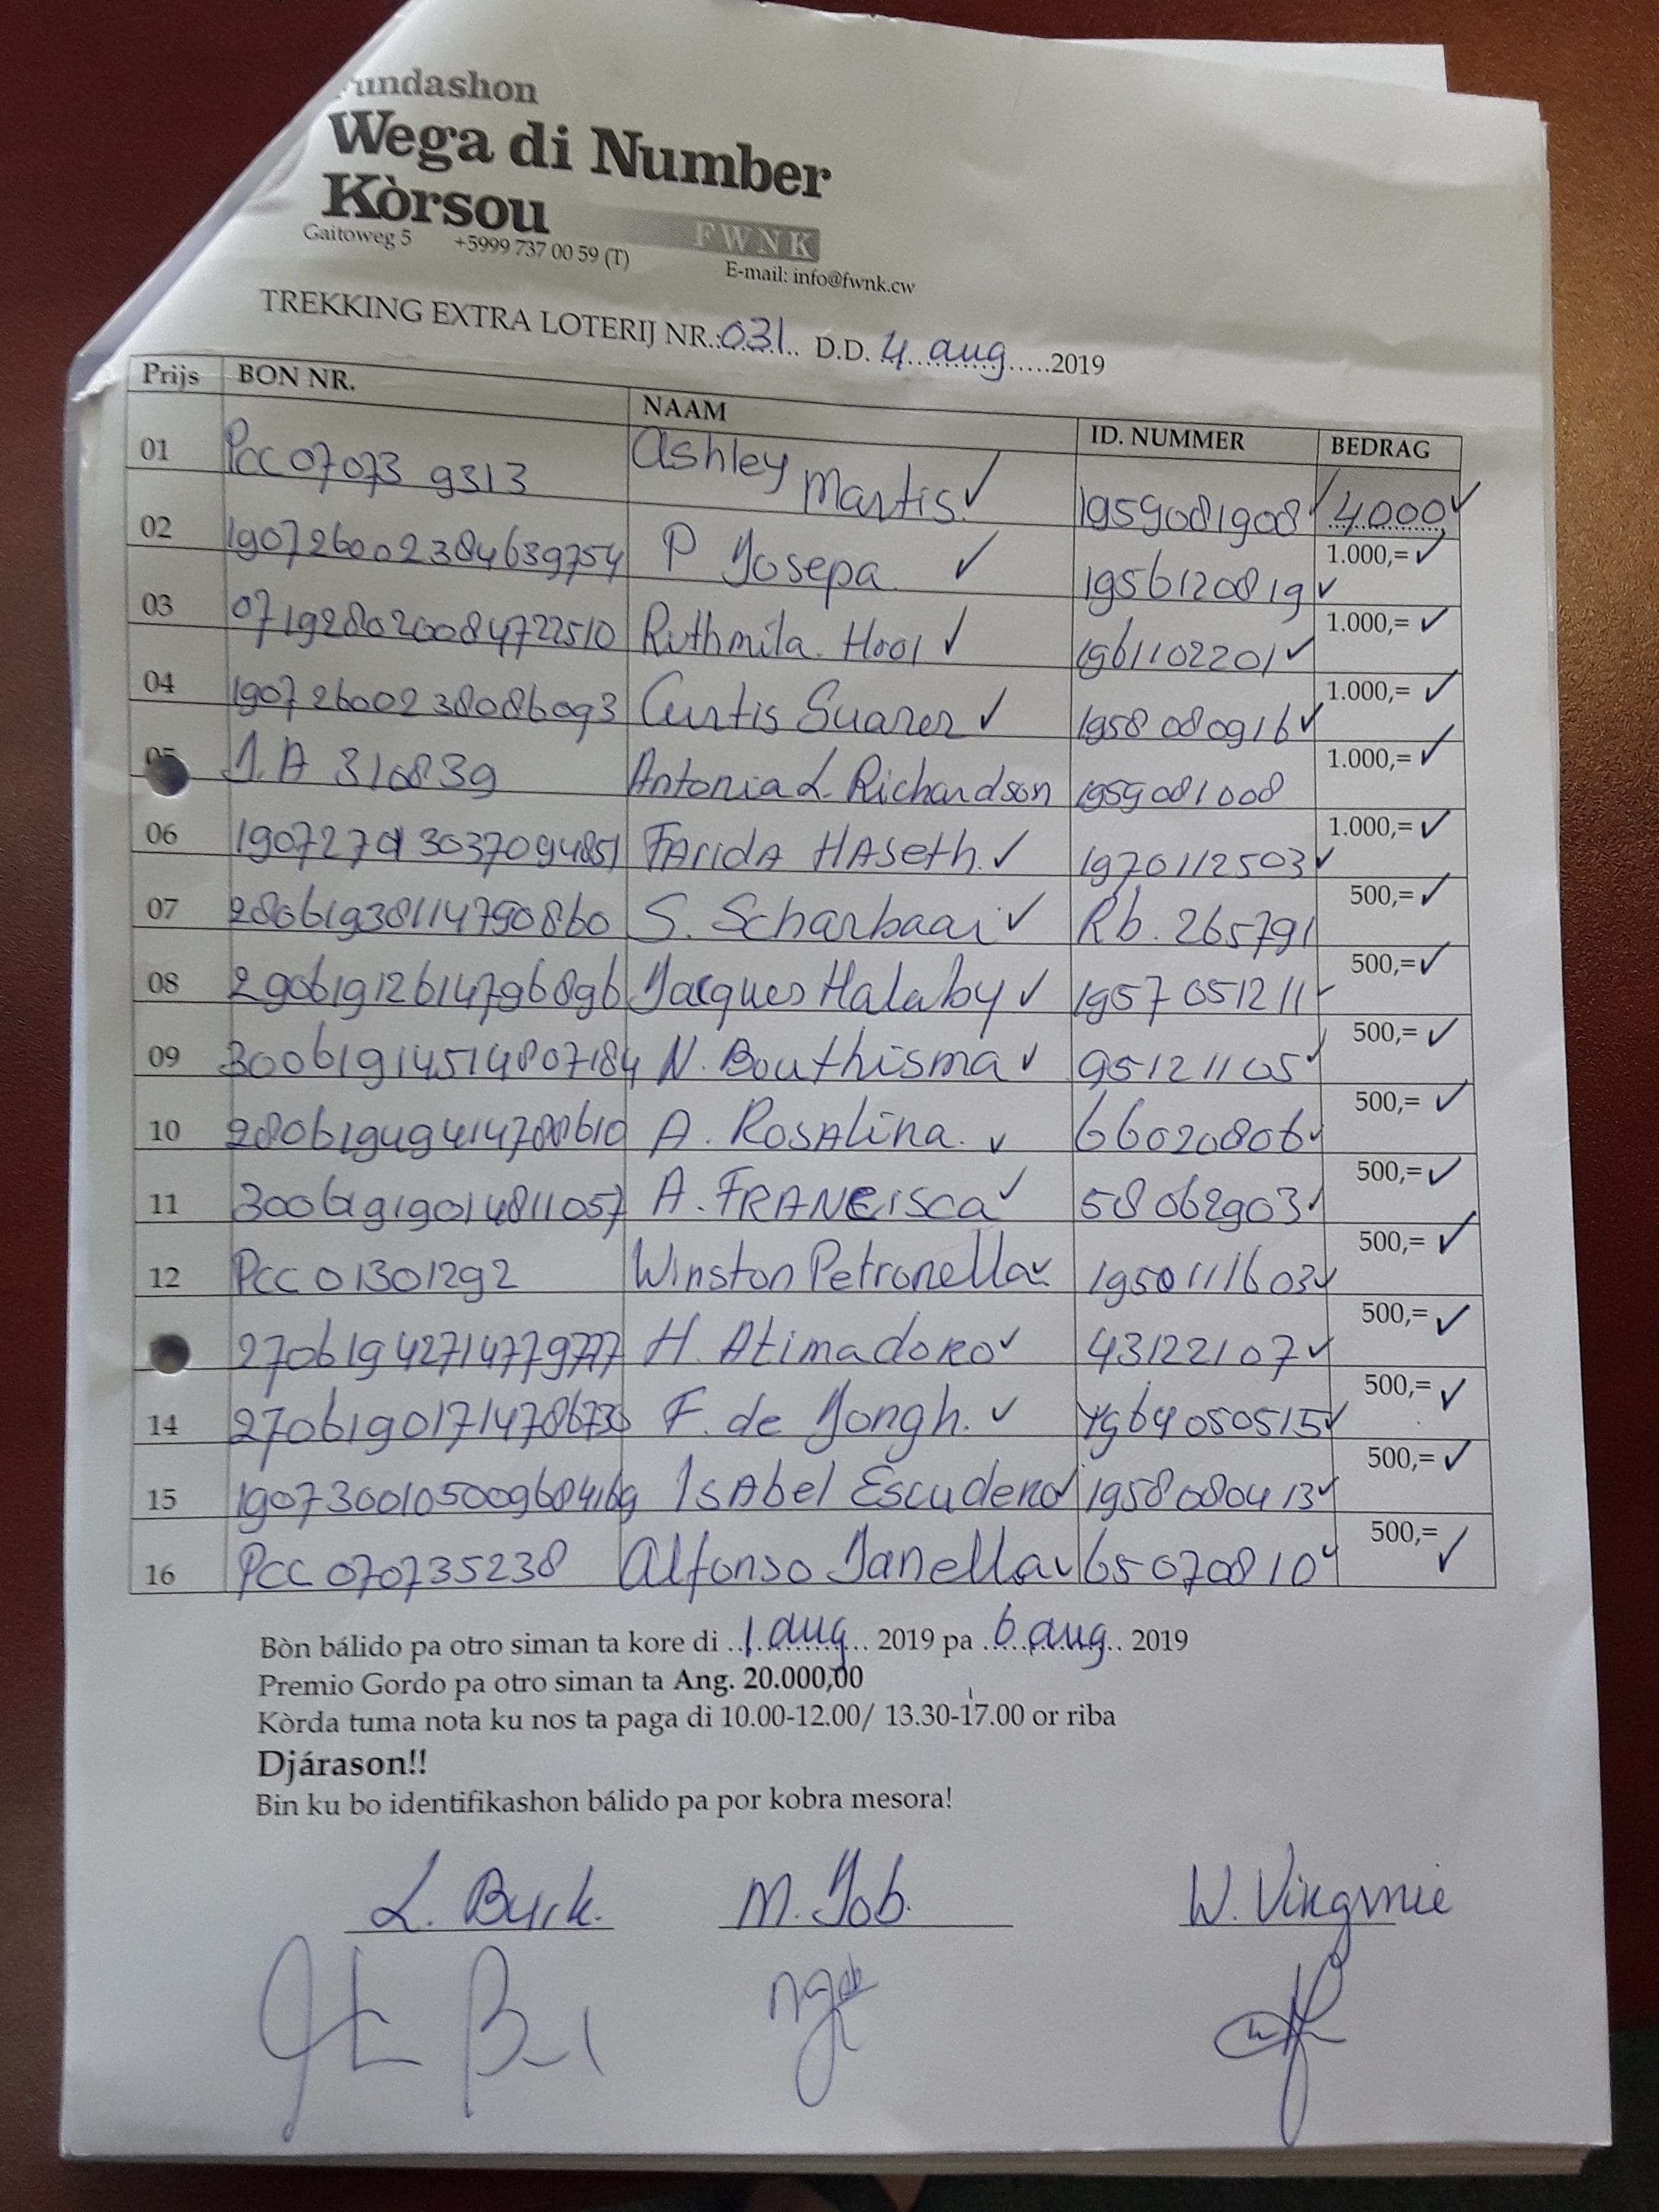 undashon
Wega di Number
Kòrsou
FWNK
Gaitoweg 5 +5999 737 00 59 (T)
E-mail: info@fwnk.cw
TREKKING EXTRA LOTERIJ NR.: 031 D.D. 4 aug 2019
Prijs BON NR. NAAM ID. NUMMER BEDRAG
01 PCC 07073 9313 Ashley Martis 1959081908 4000
02 190726002384639754 P Josepa 1956120819 1.000,=
03 071928020084722510 Ruthmila Hooi 1961102201 1.000,=
04 19072600238086093 Curtis Suarez 1958080916 1.000,=
05 1.A 310839 Antonia L. Richardson 1959081008 1.000,=
06 FAridA HAseth. 1970112503 1.000,=
07 28061938114790860 S. Scharbaai Rb. 265791 500,=
08 29061912614796896 Jacques Halaby 1957051211 500,=
09 30061914514807184 N. Bouthisma 95121105 500,=
10 28061949414788610 A. RosAlina. 66020806 500,=
11 30061919014811057 A. FRANCisca 58062903 500,=
12 PCC 01301292 Winston Petronella 1950111603 500,=
H. Atimadoro 43122107 500,=
14 F. de Jongh. 500,=
15 1907300105009684169 IsAbel Escudero 1958080413 500,=
16 PCC 070735238 Alfonso Janella 65070810 500,=
Bòn bálido pa otro siman ta kore di 1 aug 2019 pa 6 aug 2019
Premio Gordo pa otro siman ta Ang. 20.000,00
Kòrda tuma nota ku nos ta paga di 10.00-12.00/ 13.30-17.00 or riba
Djárason!!
Bin ku bo identifikashon bálido pa por kobra mesora!
L. Burk. M. Job. W. Virginie